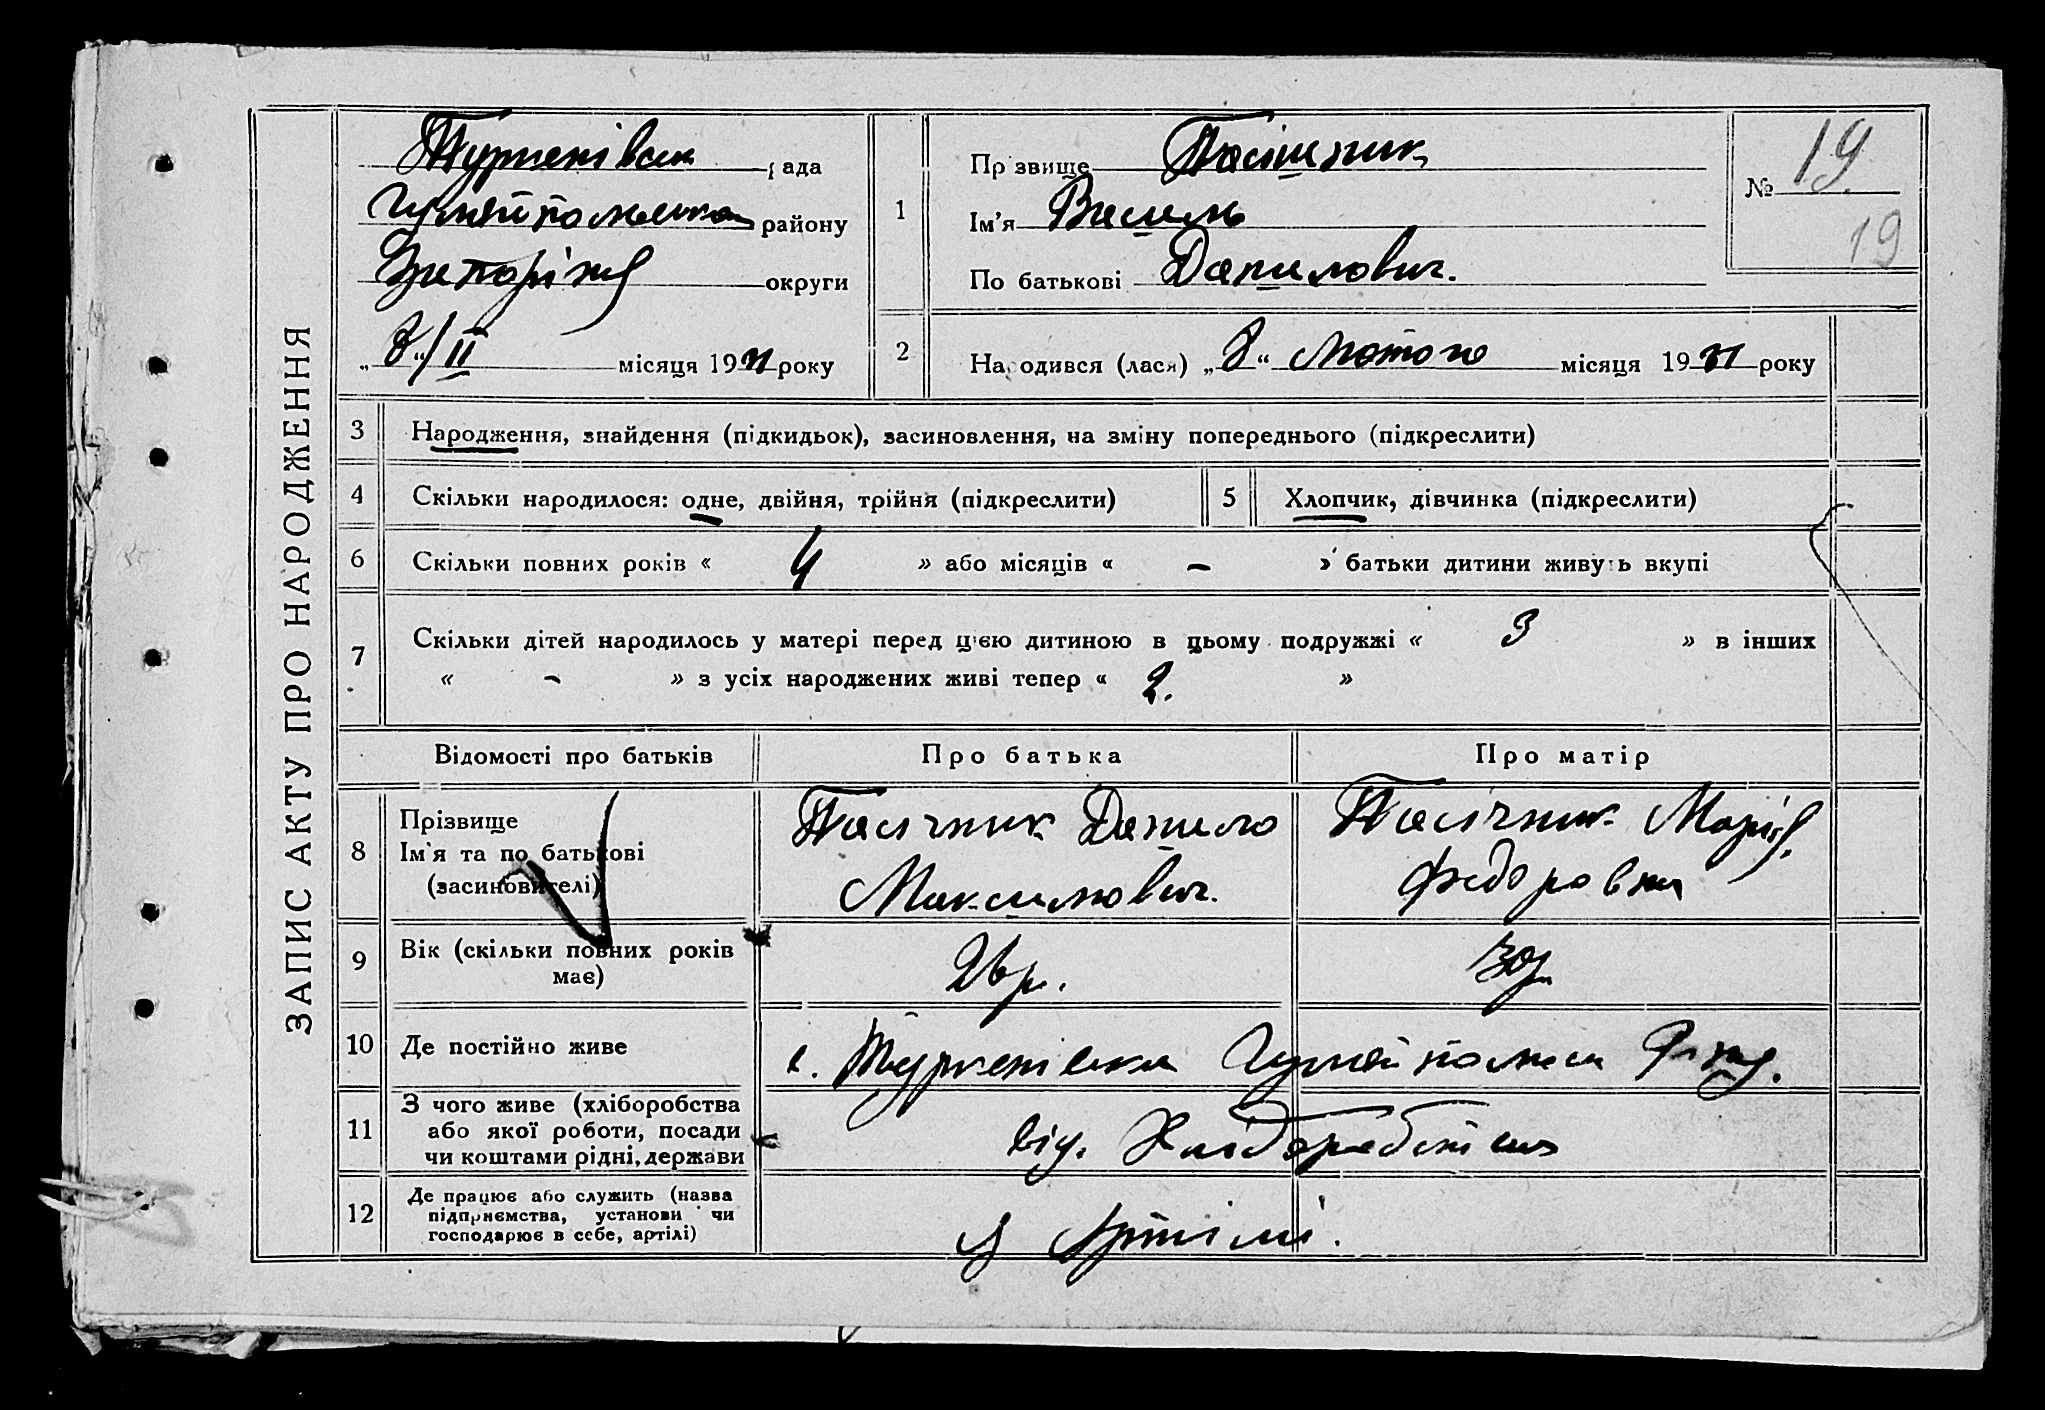 ЗАПИС АКТУ ПРО НАРОДЖЕННЯ
Туркенівська рада
Гуляйпольського району
Запоріжя округи
„8“/II місяця 1931 року
1
Прізвище Пасішник
Ім'я Василь
По батькові Данилович.
№ 19.
19
2
Народився (лася) „8“ Лютого місяця 1931 року
3 Народження, знайдення (підкидьок), засиновлення, на зміну попереднього (підкреслити)
4 Скільки народилося: одне, двійня, трійня (підкреслити)
5 Хлопчик, дівчинка (підкреслити)
6 Скільки повних років « 4 » або місяців « – » батьки дитини живуть вкупі
7 Скільки дітей народилось у матері перед цією дитиною в цьому подружжі « 3 » в інших
« – » з усіх народжених живі тепер « 2. »
Відомості про батьків Про батька Про матір
8 Прізвище
Ім'я та по батькові
(засиновителі)
Пасічник Данило
Максимович.
Пасічник Марія
Федоровна
9 Вік (скільки повних років
має)
26 р.
30 р.
10 Де постійно живе
с. Туркенівка Гуляйпольськ
11 З чого живе (хліборобства
або якої роботи, посади
чи коштами рідні, держави
від. Хліборобства
12 Де працює або служить (назва
підприємства, установи чи
господарює в себе, артілі)
У Артілі.